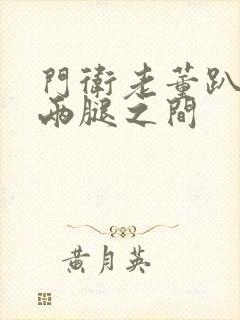 門衛老董趴
兩腿之間
黃月英